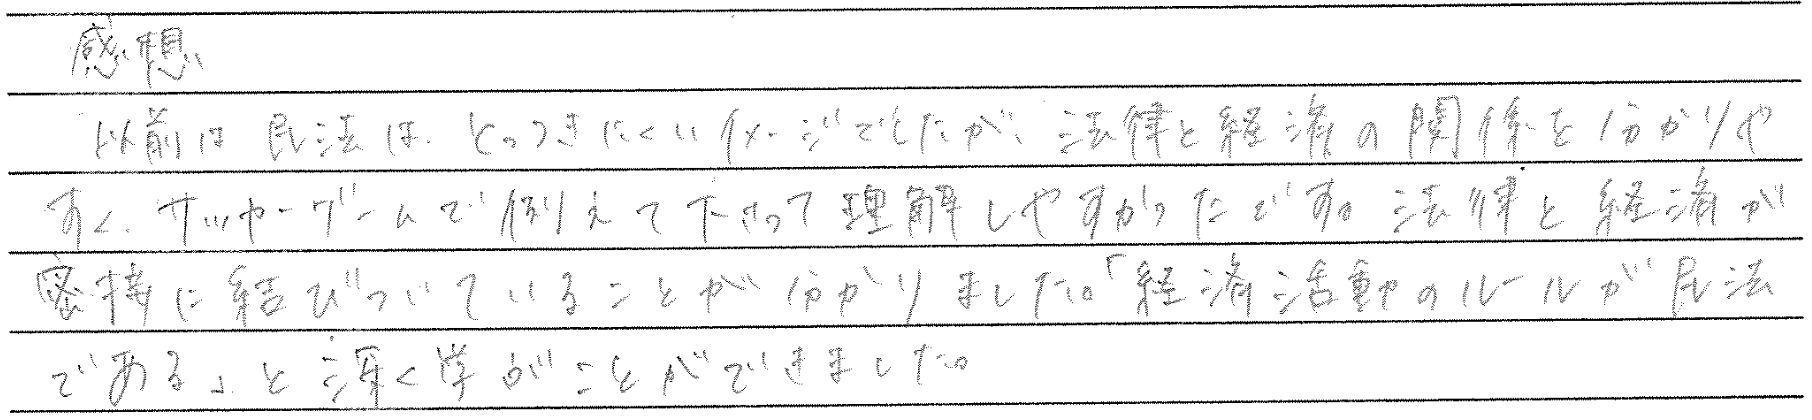 感想
以前は民法は、とっつきにくいイメージでしたが、法律と経済の関係を分かりや
すく、サッカーゲームで例えて下さって理解しやすかったです。法律と経済が
密接に結びついていることが分かりました。「経済活動のルールが民法
である」と深く学ぶことができました。